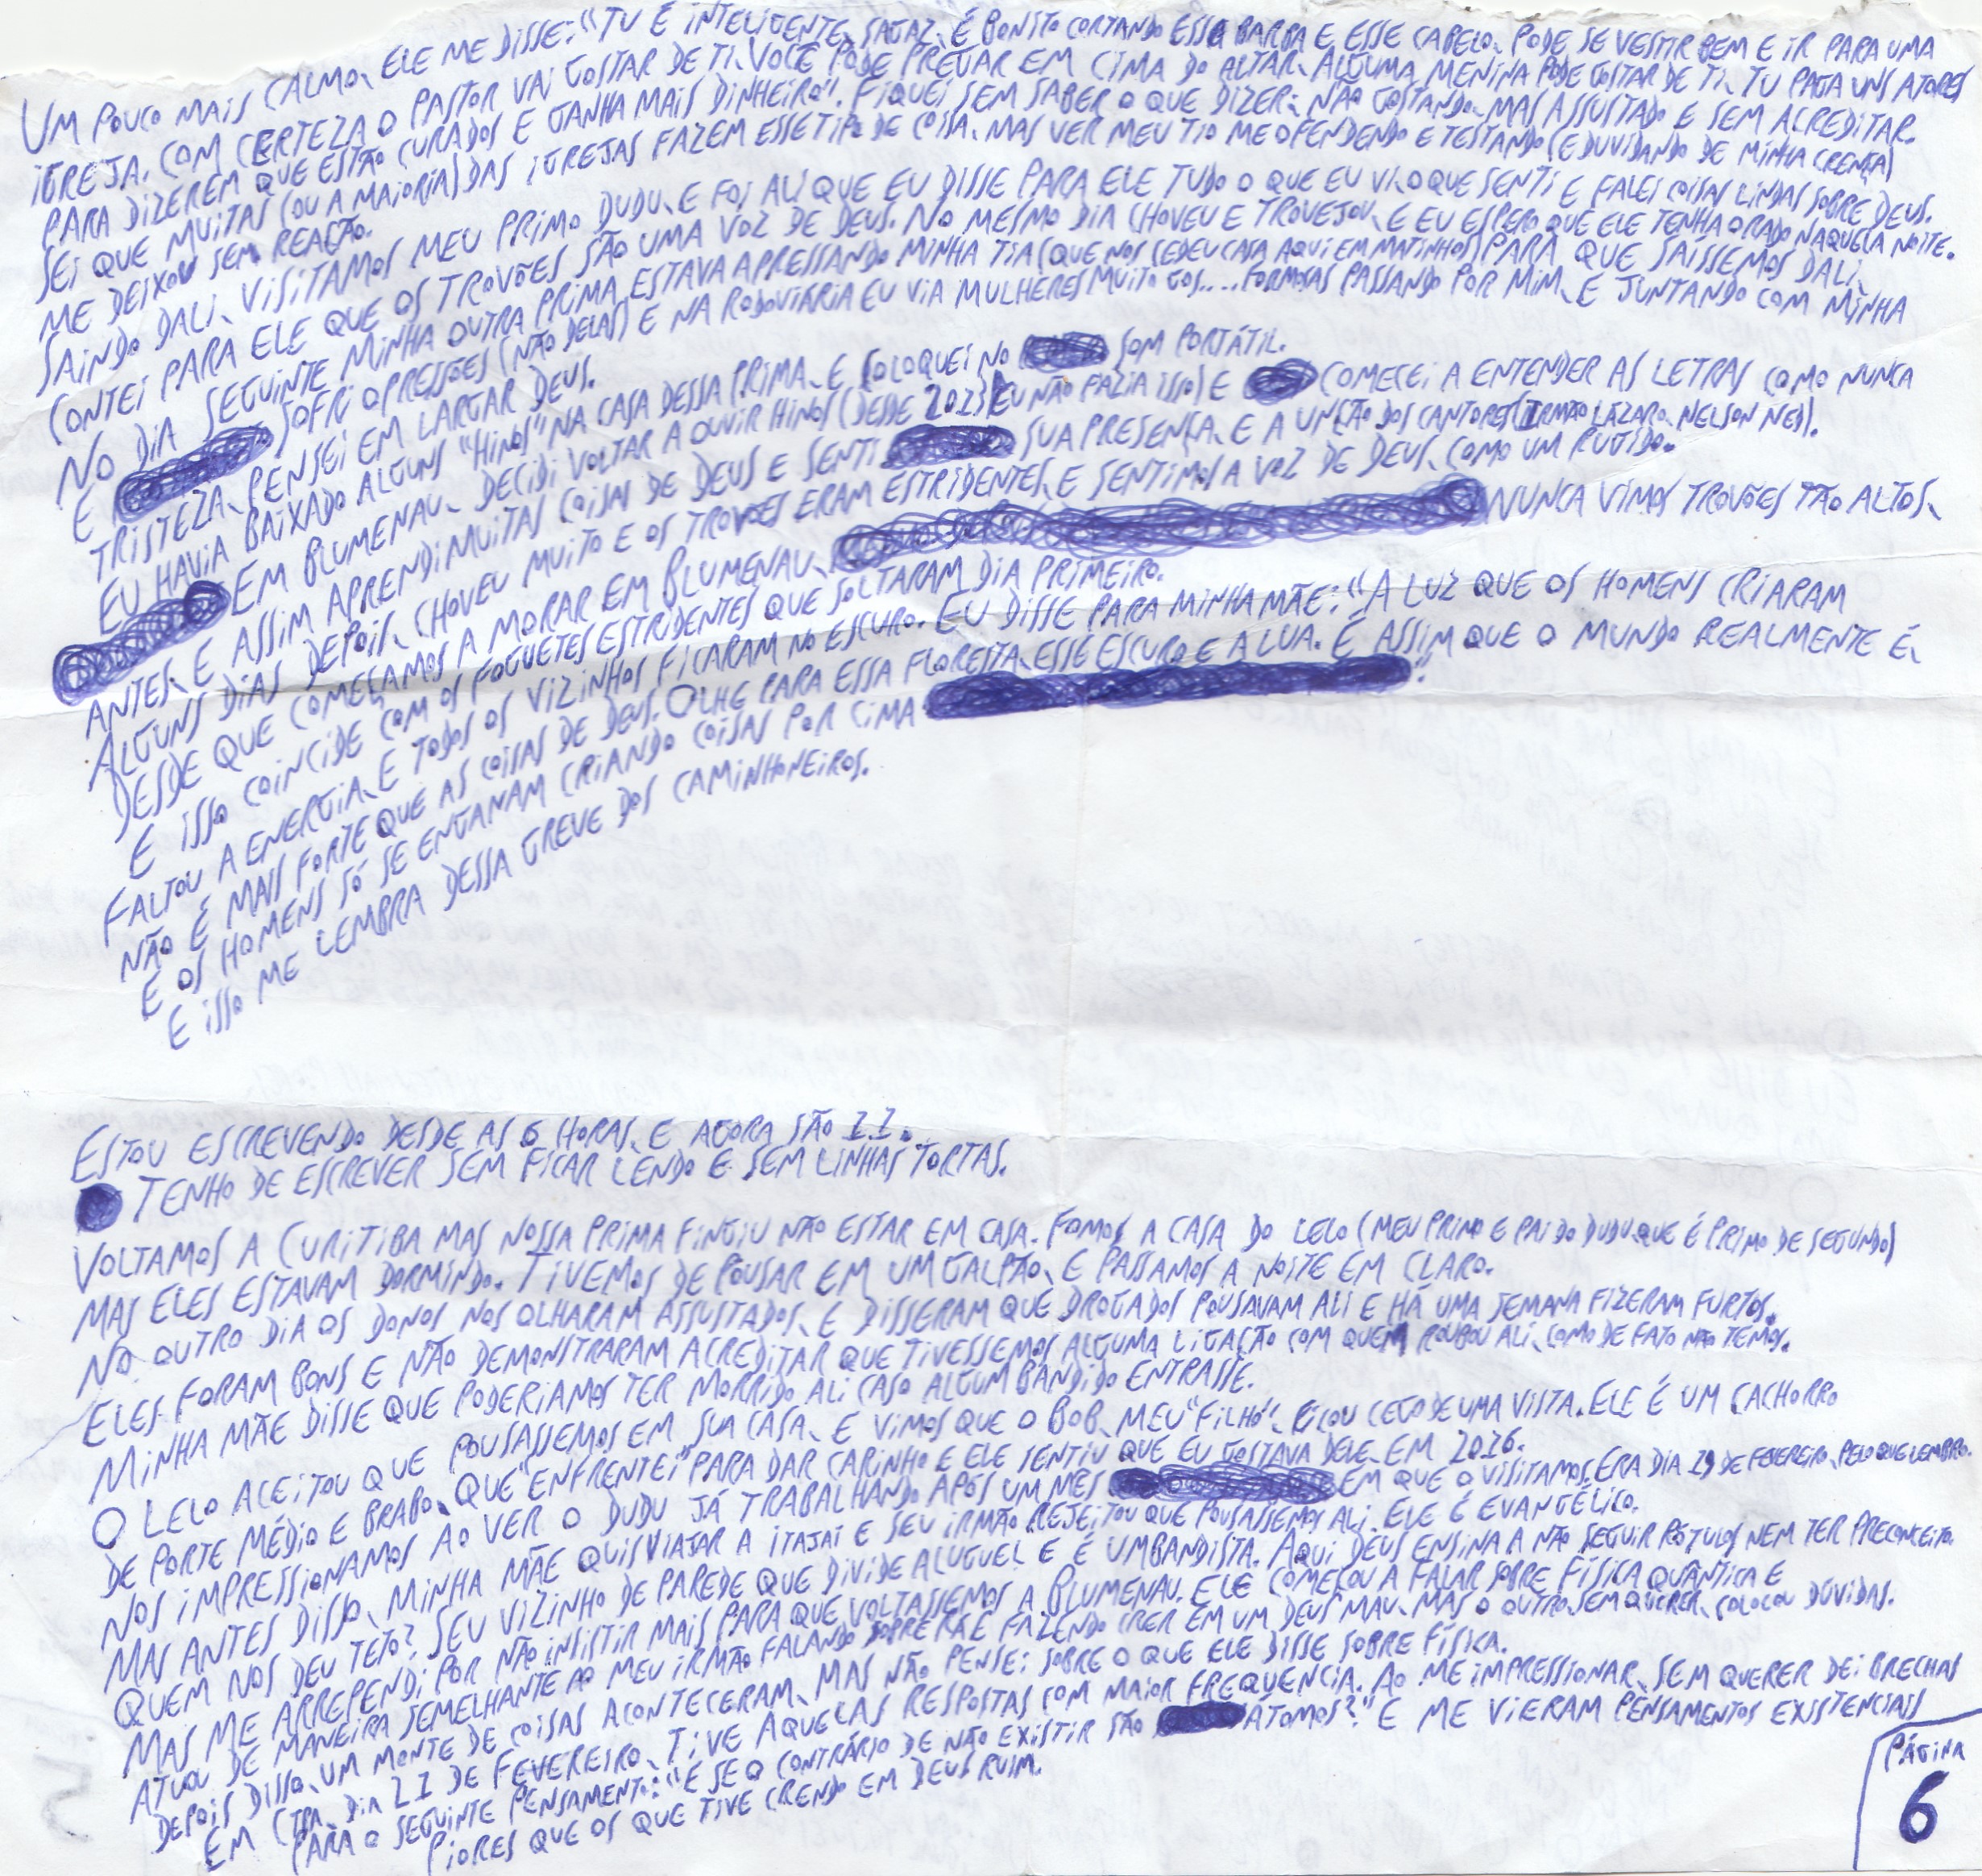 UM POUCO MAIS CALMO, ELE ME DISSE: "TU É INTELIGENTE, SAGAZ, É BONITO CORTANDO ESSA BARBA E ESSE CABELO, PODE SE VESTIR BEM E IR PARA UMA
IGREJA, COM CERTEZA O PASTOR VAI GOSTAR DE TI. VOCÊ PODE PREGAR EM CIMA DO ALTAR, ALGUMA MENINA PODE GOSTAR DE TI. TU PAGA UNS ATORES
PARA DIZEREM QUE ESTÃO CURADOS E GANHA MAIS DINHEIRO". FIQUEI SEM SABER O QUE DIZER, NÃO GOSTANDO, MAS ASSUSTADO E SEM ACREDITAR.
SEI QUE MUITAS (OU A MAIORIA) DAS IGREJAS FAZEM ESSE TIPO DE COISA, MAS VER MEU TIO ME OFENDENDO E TESTANDO (E DUVIDANDO DE MINHA CRENÇA)
ME DEIXOU SEM REAÇÃO.
SAINDO DALI, VISITAMOS MEU PRIMO DUDU, E FOI ALI QUE EU DISSE PARA ELE TUDO O QUE EU VI, O QUE SENTI E FALEI COISAS LINDAS SOBRE DEUS.
CONTEI PARA ELE QUE OS TROVÕES SÃO UMA VOZ DE DEUS. NO MESMO DIA CHOVEU E TROVEJOU, E EU ESPERO QUE ELE TENHA ORADO NAQUELA NOITE.
NO DIA SEGUINTE MINHA OUTRA PRIMA ESTAVA APRESSANDO MINHA TIA (QUE NOS CEDEU CASA AQUI EM MATINHOS) PARA QUE SAÍSSEMOS DALI,
E SOFRI OPRESSÕES (NÃO DELAS) E NA RODOVIÁRIA EU VIA MULHERES MUITO GOS.... FORMOSAS PASSANDO POR MIM, E JUNTANDO COM MINHA
TRISTEZA, PENSEI EM LARGAR DEUS.
EU HAVIA BAIXADO ALGUNS "HINOS" NA CASA DESSA PRIMA, E COLOQUEI NO SOM PORTÁTIL.
EM BLUMENAU, DECIDI VOLTAR A OUVIR HINOS (DESDE 2013 EU NÃO FAZIA ISSO) E COMECEI A ENTENDER AS LETRAS COMO NUNCA
ANTES, E ASSIM APRENDI MUITAS COISAS DE DEUS E SENTI SUA PRESENÇA, E A UNÇÃO DOS CANTORES (IRMÃO LÁZARO, NELSON NED).
ALGUNS DIAS DEPOIS, CHOVEU MUITO E OS TROVÕES ERAM ESTRIDENTES, E SENTIMOS A VOZ DE DEUS, COMO UM RUGIDO.
DESDE QUE COMEÇAMOS A MORAR EM BLUMENAU, NUNCA VIMOS TROVÕES TÃO ALTOS,
E ISSO COINCIDE COM OS FOGUETES ESTRIDENTES QUE SOLTARAM DIA PRIMEIRO.
FALTOU A ENERGIA, E TODOS OS VIZINHOS FICARAM NO ESCURO. EU DISSE PARA MINHA MÃE: "A LUZ QUE OS HOMENS CRIARAM
NÃO É MAIS FORTE QUE AS COISAS DE DEUS. OLHE PARA ESSA FLORESTA, ESSE ESCURO E A LUA. É ASSIM QUE O MUNDO REALMENTE É,
E OS HOMENS SÓ SE ENGANAM CRIANDO COISAS POR CIMA".
E ISSO ME LEMBRA DESSA GREVE DOS CAMINHONEIROS.
ESTOU ESCREVENDO DESDE AS 6 HORAS, E AGORA SÃO 11.
TENHO DE ESCREVER SEM FICAR LENDO E SEM LINHAS TORTAS.
VOLTAMOS A CURITIBA MAS NOSSA PRIMA FINGIU NÃO ESTAR EM CASA. FOMOS A CASA DO LELO (MEU PRIMO E PAI DO DUDU, QUE É PRIMO DE SEGUNDO)
MAS ELES ESTAVAM DORMINDO. TIVEMOS DE POUSAR EM UM GALPÃO, E PASSAMOS A NOITE EM CLARO.
NO OUTRO DIA OS DONOS NOS OLHARAM ASSUSTADOS, E DISSERAM QUE DROGADOS POUSAVAM ALI E HÁ UMA SEMANA FIZERAM FURTOS.
ELES FORAM BONS E NÃO DEMONSTRARAM ACREDITAR QUE TIVESSEMOS ALGUMA LIGAÇÃO COM QUEM ROUBOU ALI, COMO DE FATO NÃO TEMOS.
MINHA MÃE DISSE QUE PODERIAMOS TER MORRIDO ALI CASO ALGUM BANDIDO ENTRASSE.
O LELO ACEITOU QUE POUSASSEMOS EM SUA CASA, E VIMOS QUE O BOB, MEU "FILHO", FICOU CEGO DE UMA VISTA. ELE É UM CACHORRO
DE PORTE MÉDIO E BRABO, QUE "ENFRENTEI" PARA DAR CARINHO E ELE SENTIU QUE EU GOSTAVA DELE, EM 2016.
NOS IMPRESSIONAMOS AO VER O DUDU JÁ TRABALHANDO APÓS UM MÊS EM QUE O VISITAMOS. ERA DIA 19 DE FEVEREIRO, PELO QUE LEMBRO.
MAS ANTES DISSO, MINHA MÃE QUIS VIAJAR A ITAJAÍ E SEU IRMÃO REJEITOU QUE POUSASSEMOS ALI. ELE É EVANGÉLICO.
QUEM NOS DEU TETO? SEU VIZINHO DE PAREDE QUE DIVIDE ALUGUEL E É UMBANDISTA. AQUI DEUS ENSINA A NÃO SEGUIR RÓTULOS NEM TER PRECONCEITO.
MAS ME ARREPENDI POR NÃO INSISTIR MAIS PARA QUE VOLTASSEMOS A BLUMENAU. ELE COMEÇOU A FALAR SOBRE FÍSICA QUÂNTICA E
ATUOU DE MANEIRA SEMELHANTE AO MEU IRMÃO FALANDO SOBRE RÁ E FAZENDO CRER EM UM DEUS MAU, MAS O OUTRO, SEM QUERER, COLOCOU DÚVIDAS.
DEPOIS DISSO, UM MONTE DE COISAS ACONTECERAM, MAS NÃO PENSEI SOBRE O QUE ELE DISSE SOBRE FÍSICA.
EM CTBA, DIA 21 DE FEVEREIRO, TIVE AQUELAS RESPOSTAS COM MAIOR FREQUENCIA. AO ME IMPRESSIONAR, SEM QUERER DEI BRECHAS
PARA O SEGUINTE PENSAMENTO: "E SE O CONTRÁRIO DE NÃO EXISTIR SÃO ÁTOMOS?" E ME VIERAM PENSAMENTOS EXISTENCIAIS
PIORES QUE OS QUE TIVE CRENDO EM DEUS RUIM.
PÁGINA
6